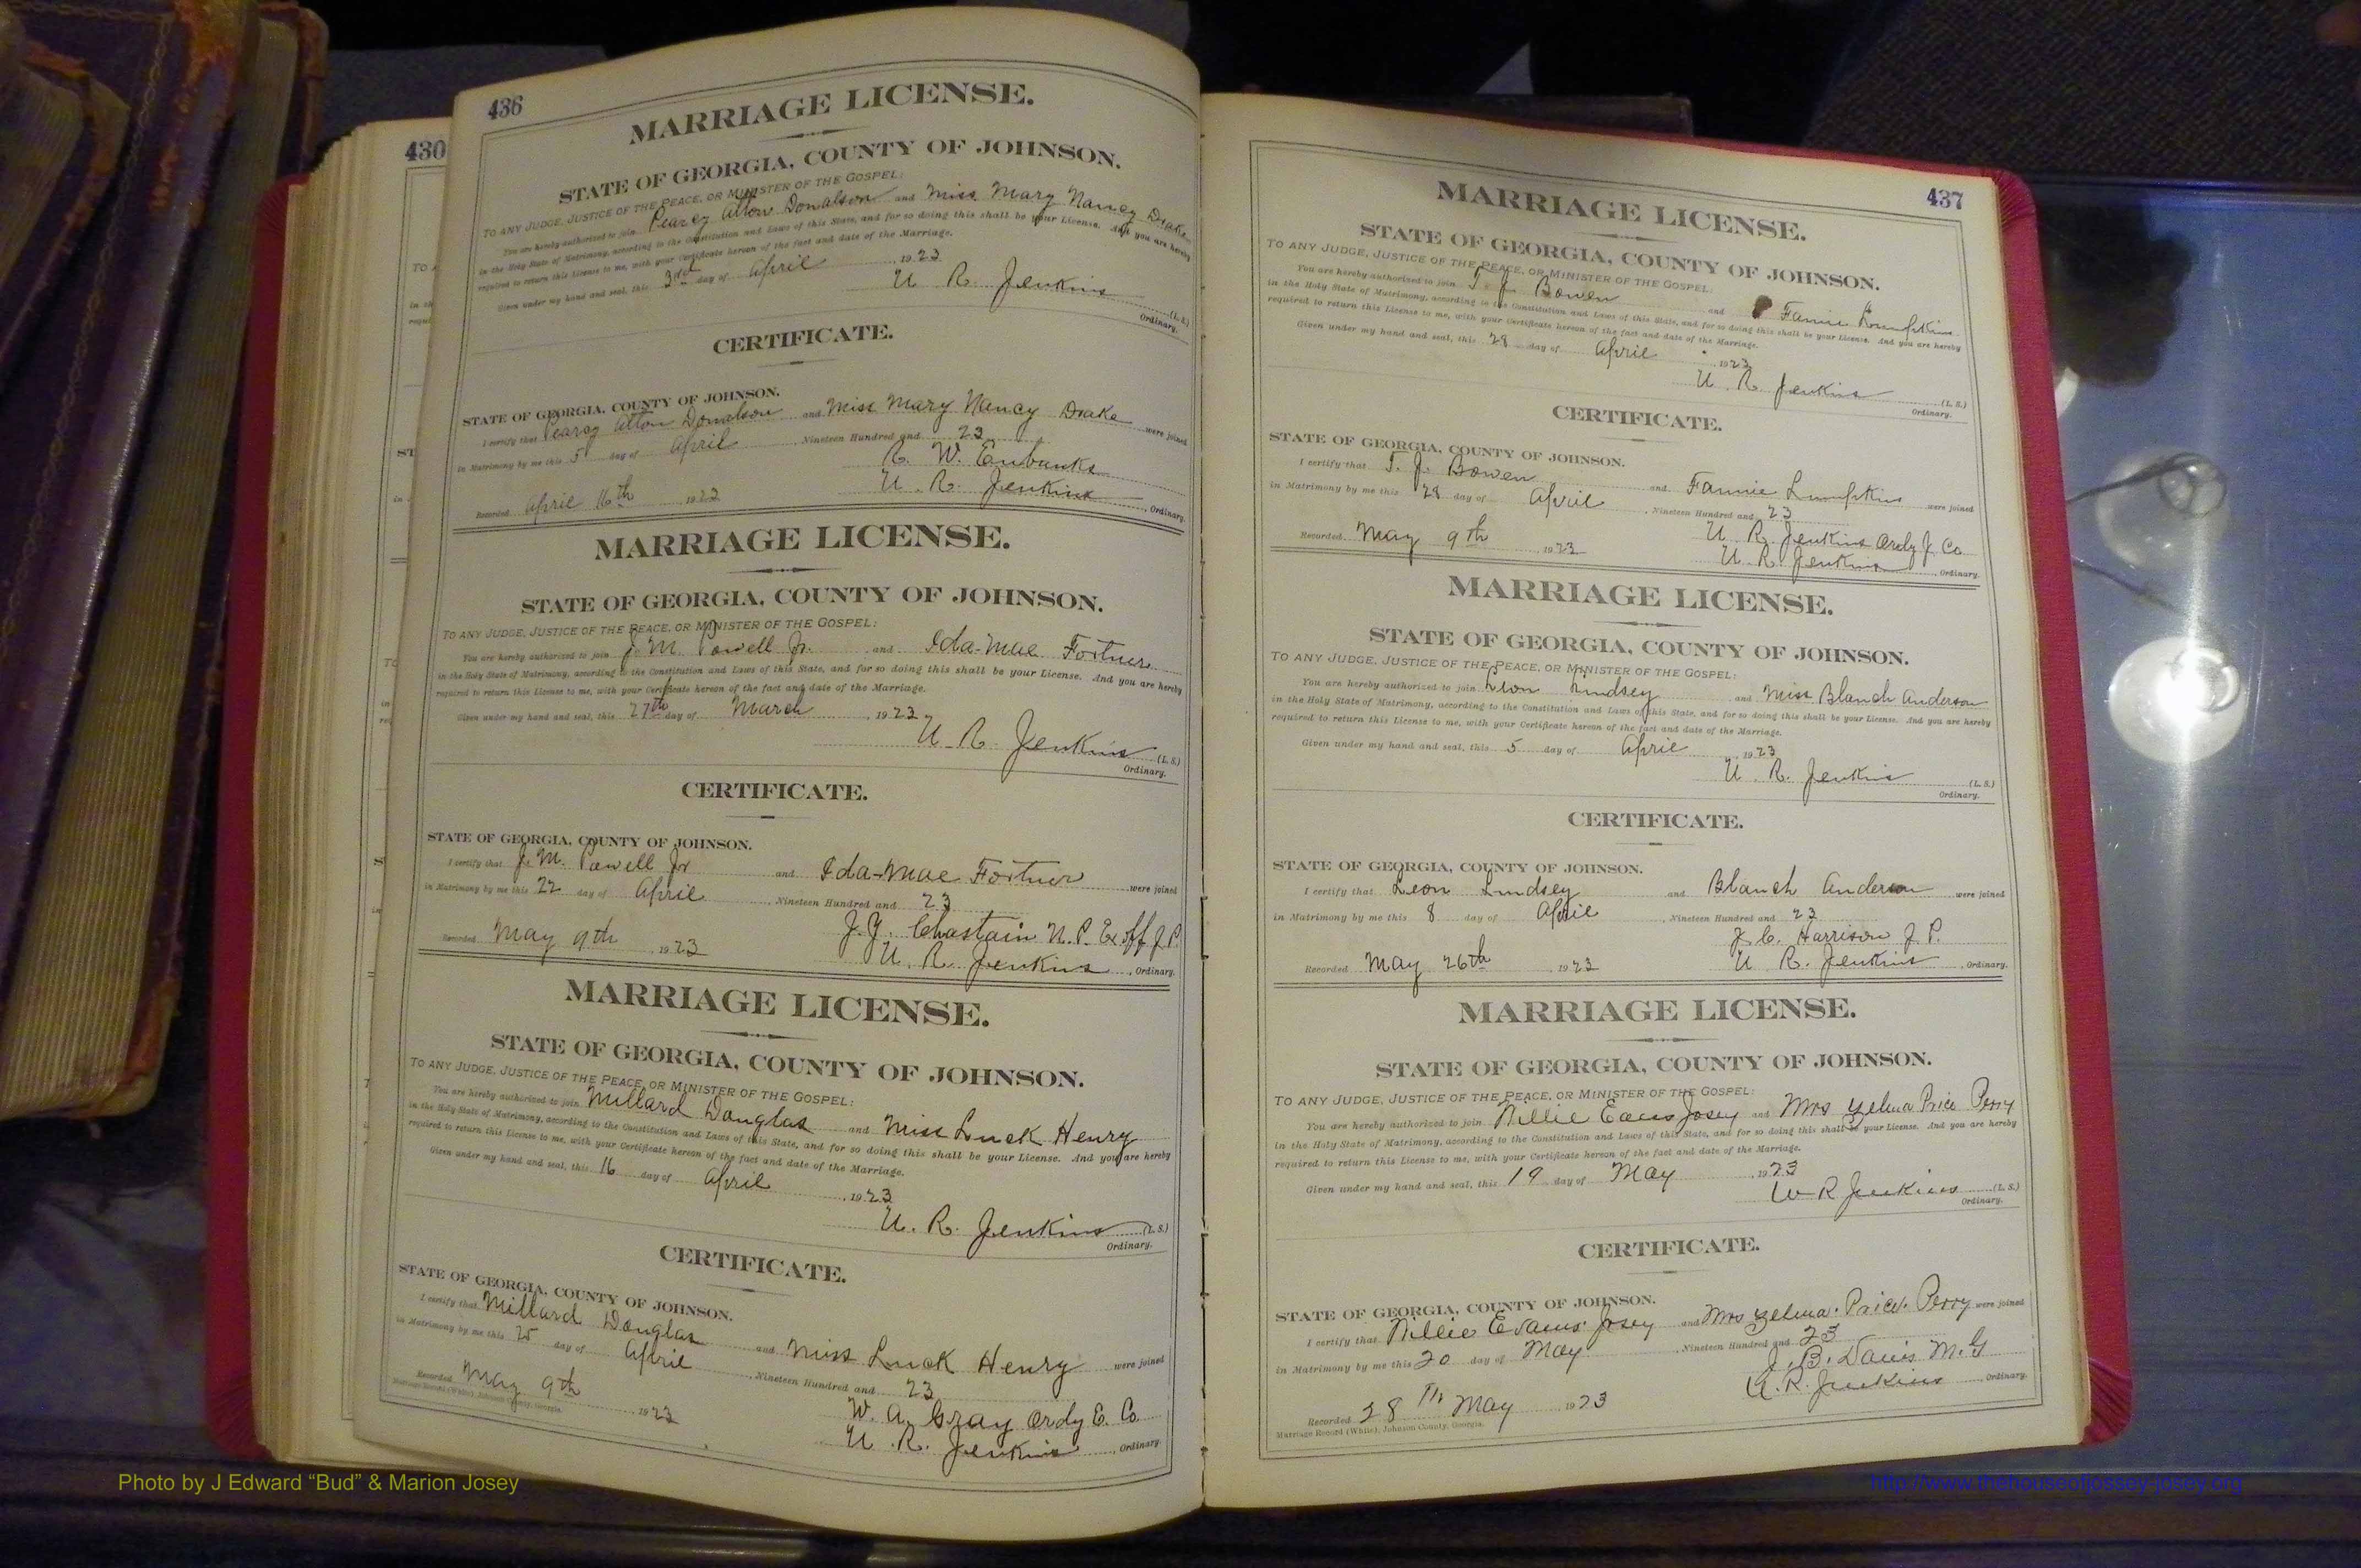 430
436
MARRIAGE LICENSE.
STATE OF GEORGIA, COUNTY OF JOHNSON.
TO ANY JUDGE, JUSTICE OF THE PEACE, OR MINISTER OF THE GOSPEL:
You are hereby authorized to join Pearcy Alton Donalson and Miss Mary Nancy Drake
in the Holy State of Matrimony, according to the Constitution and Laws of this State, and for so doing this shall be your License. And you are hereby
required to return this License to me, with your Certificate hereon of the fact and date of the Marriage.
Given under my hand and seal, this 3rd day of April, 1923
U. R. Jenkins (L. S.)
Ordinary.
CERTIFICATE.
STATE OF GEORGIA, COUNTY OF JOHNSON.
I certify that Pearcy Alton Donalson and Miss Mary Nancy Drake were joined
in Matrimony by me this 5 day of April, Nineteen Hundred and 23
R. W. Eubanks
Recorded April 16th 1923 U. R. Jenkins, Ordinary.
MARRIAGE LICENSE.
STATE OF GEORGIA, COUNTY OF JOHNSON.
TO ANY JUDGE, JUSTICE OF THE PEACE, OR MINISTER OF THE GOSPEL:
You are hereby authorized to join J. M. Powell Jr. and Ida-Mae Fortner
in the Holy State of Matrimony, according to the Constitution and Laws of this State, and for so doing this shall be your License. And you are hereby
required to return this License to me, with your Certificate hereon of the fact and date of the Marriage.
Given under my hand and seal, this 27th day of March, 1923
U. R. Jenkins (L. S.)
Ordinary.
CERTIFICATE.
STATE OF GEORGIA, COUNTY OF JOHNSON.
I certify that J. M. Powell Jr and Ida-Mae Fortner were joined
in Matrimony by me this 22 day of April, Nineteen Hundred and 23
J. Y. Chastain N. P. Ex off J. P.
Recorded May 9th, 1923 U. R. Jenkins, Ordinary.
MARRIAGE LICENSE.
STATE OF GEORGIA, COUNTY OF JOHNSON.
TO ANY JUDGE, JUSTICE OF THE PEACE, OR MINISTER OF THE GOSPEL:
You are hereby authorized to join Millard Douglas and Miss Luck Henry
in the Holy State of Matrimony, according to the Constitution and Laws of this State, and for so doing this shall be your License. And you are hereby
required to return this License to me, with your Certificate hereon of the fact and date of the Marriage.
Given under my hand and seal, this 16 day of April, 1923
U. R. Jenkins (L. S.)
Ordinary.
CERTIFICATE.
STATE OF GEORGIA, COUNTY OF JOHNSON.
I certify that Millard Douglas and Miss Luck Henry were joined
in Matrimony by me this 25 day of April, Nineteen Hundred and 23
W. A. Gray Ordy E. Co
Recorded May 9th 1923 U. R. Jenkins, Ordinary.
Marriage Record (White), Johnson County, Georgia.
437
MARRIAGE LICENSE.
STATE OF GEORGIA, COUNTY OF JOHNSON.
TO ANY JUDGE, JUSTICE OF THE PEACE, OR MINISTER OF THE GOSPEL:
You are hereby authorized to join T. J. Bowen and Fannie Lumpkins
in the Holy State of Matrimony, according to the Constitution and Laws of this State, and for so doing this shall be your License. And you are hereby
required to return this License to me, with your Certificate hereon of the fact and date of the Marriage.
Given under my hand and seal, this 28 day of April, 1923
U. R. Jenkins (L. S.)
Ordinary.
CERTIFICATE.
STATE OF GEORGIA, COUNTY OF JOHNSON.
I certify that T. J. Bowen and Fannie Lumpkins were joined
in Matrimony by me this 28 day of April, Nineteen Hundred and 23
U. R. Jenkins Ordy J. Co
Recorded May 9th 1923 U. R. Jenkins, Ordinary.
MARRIAGE LICENSE.
STATE OF GEORGIA, COUNTY OF JOHNSON.
TO ANY JUDGE, JUSTICE OF THE PEACE, OR MINISTER OF THE GOSPEL:
You are hereby authorized to join Leon Lindsey and Miss Blanch Anderson
in the Holy State of Matrimony, according to the Constitution and Laws of this State, and for so doing this shall be your License. And you are hereby
required to return this License to me, with your Certificate hereon of the fact and date of the Marriage.
Given under my hand and seal, this 5 day of April, 1923
U. R. Jenkins (L. S.)
Ordinary.
CERTIFICATE.
STATE OF GEORGIA, COUNTY OF JOHNSON.
I certify that Leon Lindsey and Blanch Anderson were joined
in Matrimony by me this 8 day of April, Nineteen Hundred and 23
J. C. Harrison J. P.
Recorded May 26th, 1923 U. R. Jenkins, Ordinary.
MARRIAGE LICENSE.
STATE OF GEORGIA, COUNTY OF JOHNSON.
TO ANY JUDGE, JUSTICE OF THE PEACE, OR MINISTER OF THE GOSPEL:
You are hereby authorized to join Willie Evans Josey and Mrs Zelma Price Perry
in the Holy State of Matrimony, according to the Constitution and Laws of this State, and for so doing this shall be your License. And you are hereby
required to return this License to me, with your Certificate hereon of the fact and date of the Marriage.
Given under my hand and seal, this 19 day of May, 1923
U R Jenkins (L. S.)
Ordinary.
CERTIFICATE.
STATE OF GEORGIA, COUNTY OF JOHNSON.
I certify that Willie Evans Josey and Mrs Zelma Price Perry were joined
in Matrimony by me this 20 day of May, Nineteen Hundred and 23
J. B. Davis M. G
Recorded 28 Th May 1923 U. R. Jenkins, Ordinary.
Marriage Record (White), Johnson County, Georgia.
Photo by J Edward “Bud” & Marion Josey
http://www.thehouseofjossey-josey.org